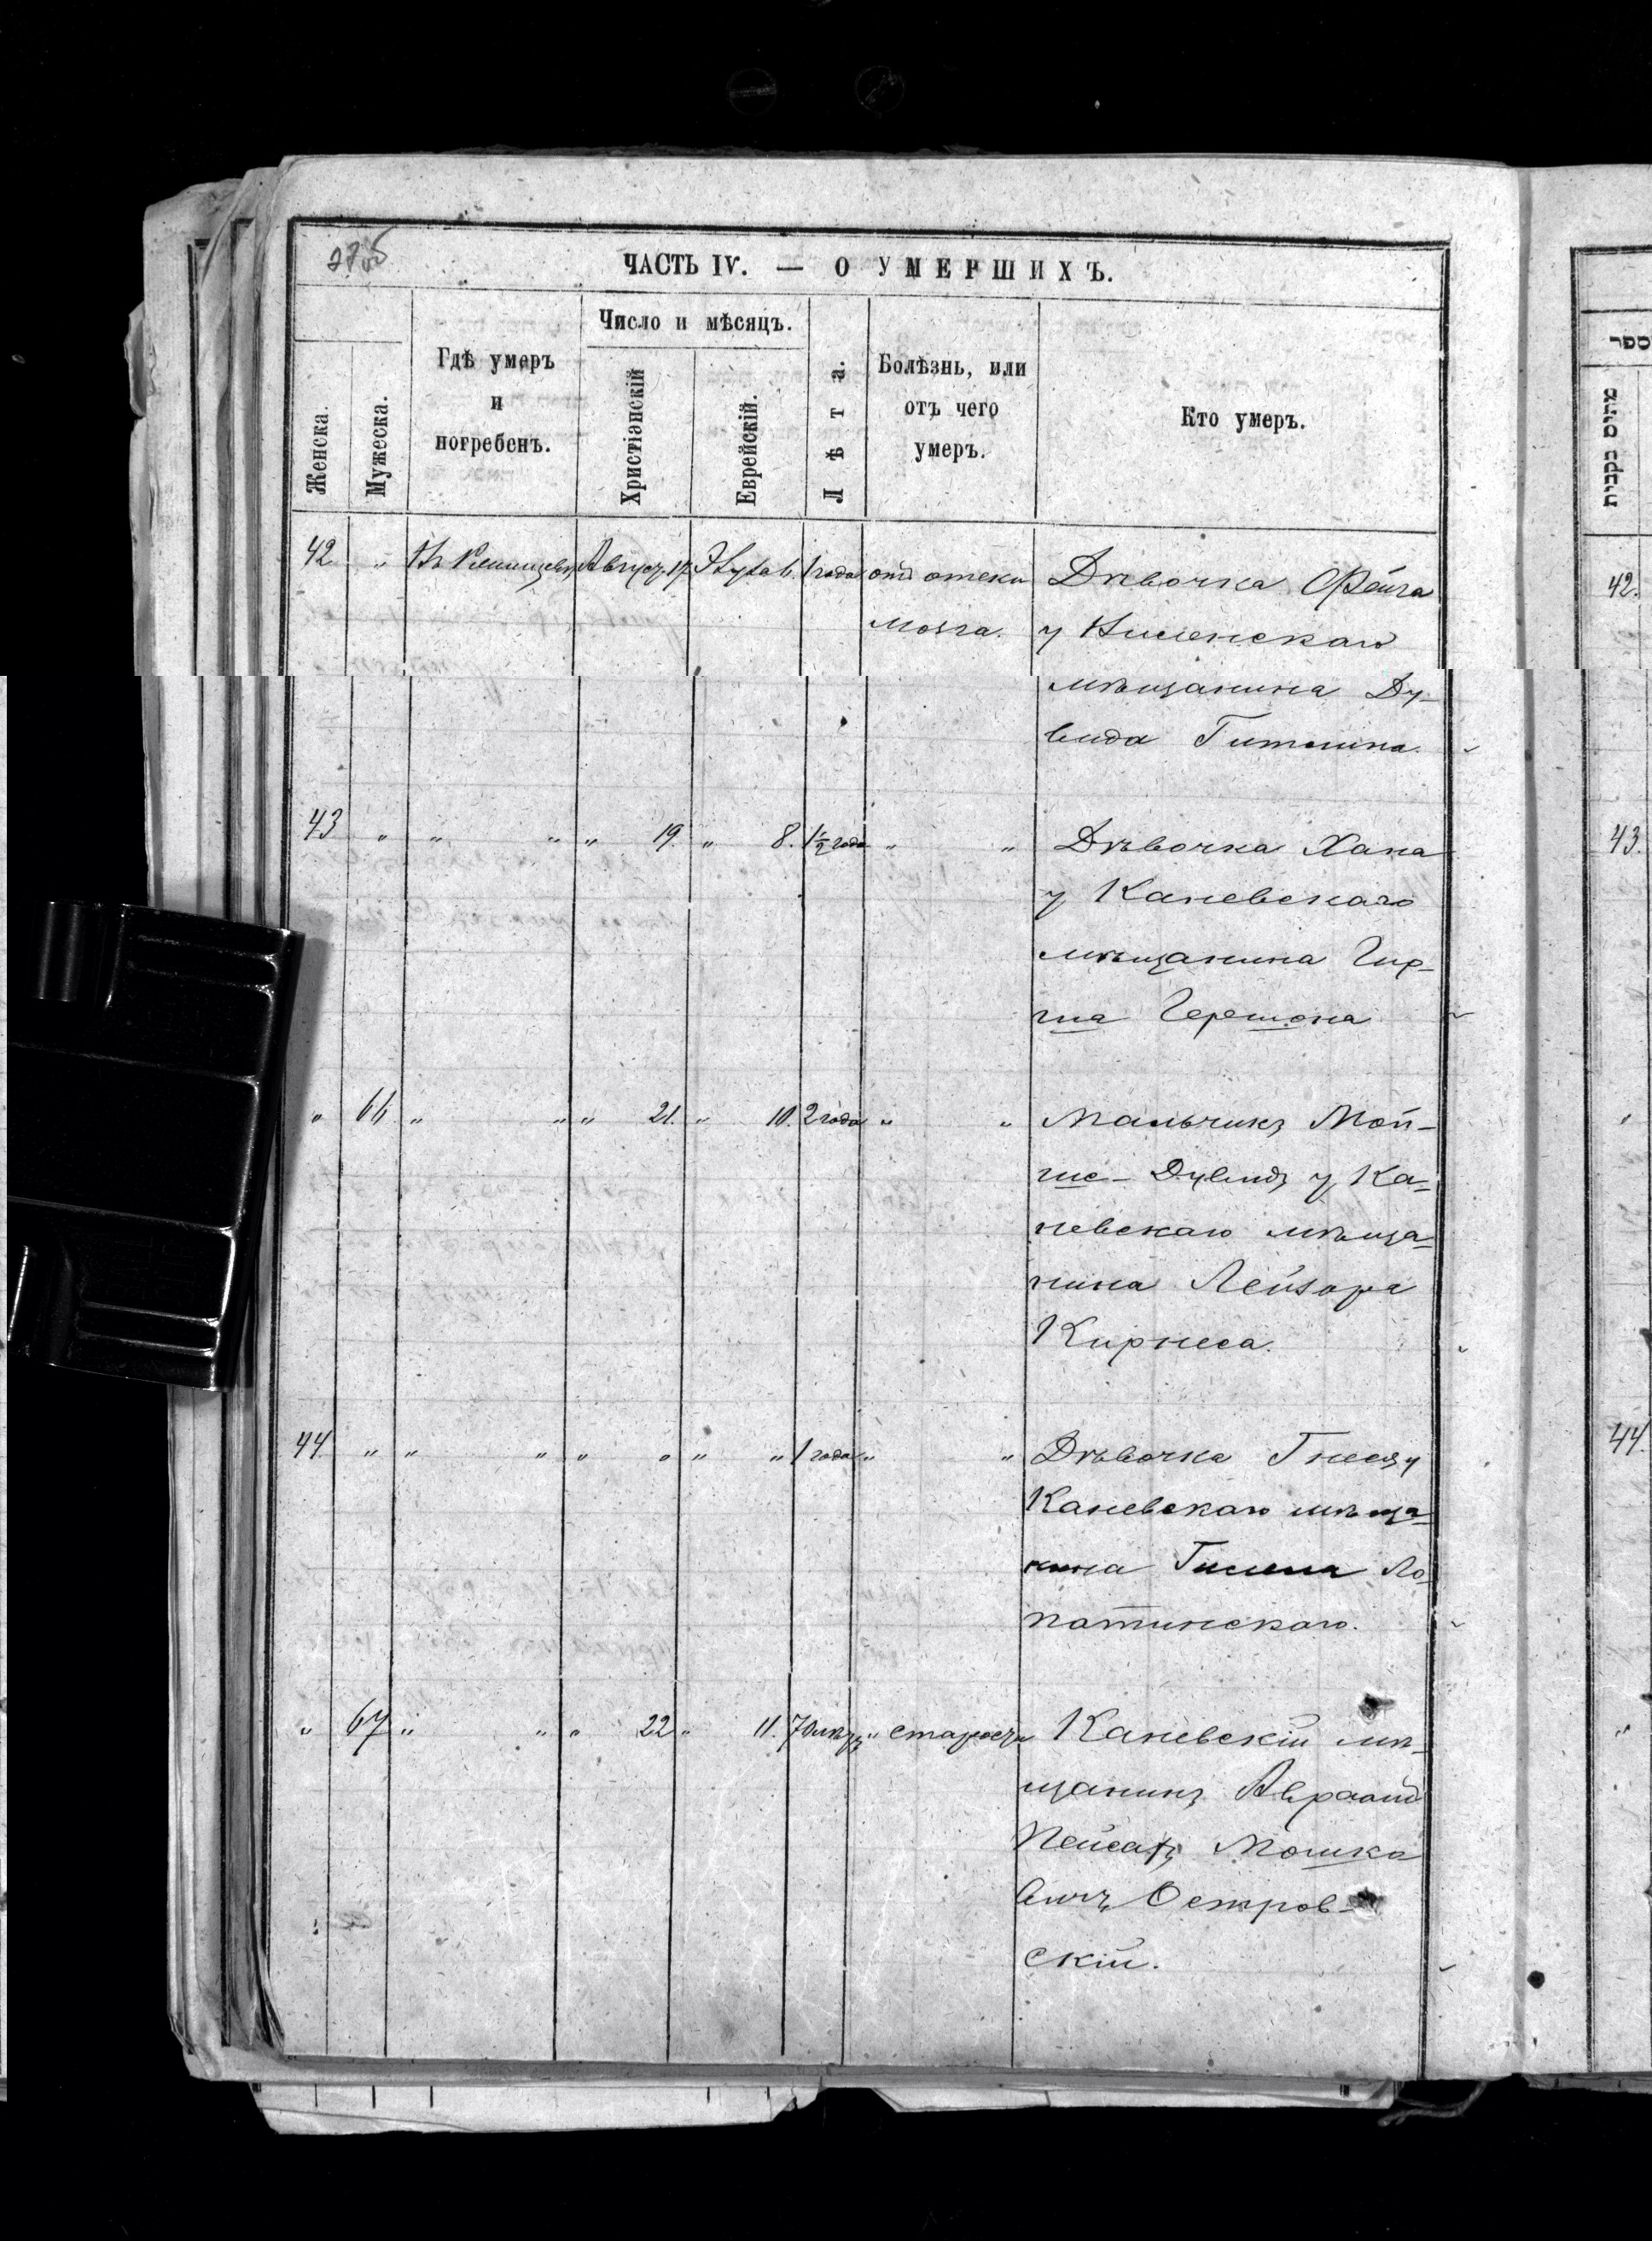 ЧАСТЬ IV. — О УМЕРШИХЪ.
Женска.
Мужеска.
Гдѣ умеръ
и
погребенъ.
Число и мѣсяцъ.
Христіанскій
Еврейскій.
Лѣта.
Болѣзнь, или
отъ чего
умеръ.
Кто умеръ.
42 " Август. 17. 6. 1 года отъ отека Дѣвочка Фейга
мозга. у
мѣщанина Ду-
вида
43 " " " " 19. " 8. 1½ года " " Дѣвочка Хана
у Каневскаго
мѣщанина Гир-
ша Гершона
" 66 " " " 21. " 10. 2 года " " Мальчикъ Мой-
ше-Дувидъ у Ка-
невскаго мѣща-
нина Лейзора
Кирнеса.
44. " " " " " " " 1 года " " Дѣвочка Гнеся у
Каневскаго мѣща-
нина Гилеля Ло-
патинскаго.
" 67 " " " 22 " 11. 70 лѣтъ " старости Каневскій мѣ-
щанинъ Авраамъ
Пейсахъ Мошко
вичъ Остров-
скій.
ספר
מתים נקבות
42.
43.
44.